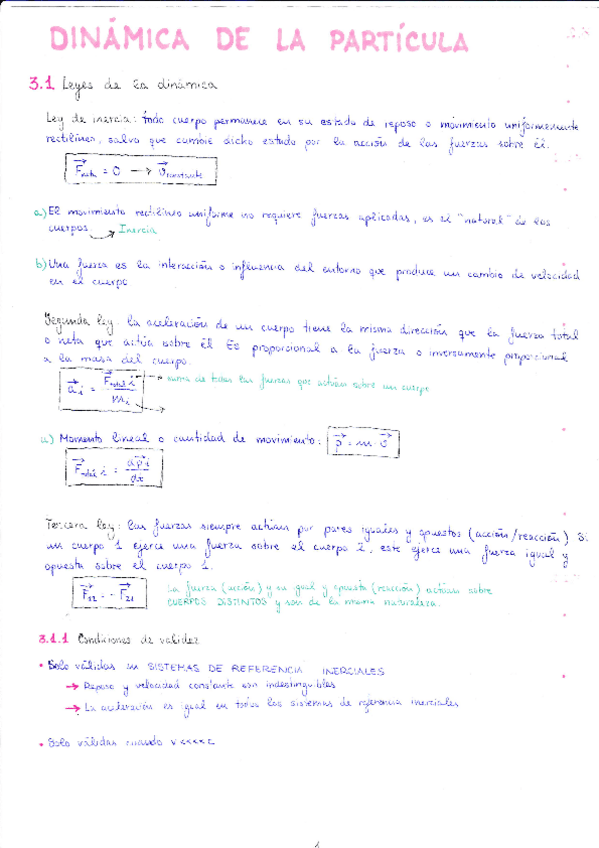 DINÁMICA DE LA PARTÍCULA
3.1 Leyes de la dinámica
Ley de inercia: todo cuerpo permanece en su estado de reposo o movimiento uniformemente
rectilíneo, salvo que cambie dicho estado por la acción de las fuerzas sobre él.
F neta = 0 → v constante
a) El movimiento rectilíneo uniforme no requiere fuerzas aplicadas, es el "natural" de los
cuerpos → Inercia
b) Una fuerza es la interacción o influencia del entorno que produce un cambio de velocidad
en el cuerpo
Segunda ley: la aceleración de un cuerpo tiene la misma dirección que la fuerza total
o neta que actúa sobre él. Es proporcional a la fuerza e inversamente proporcional
a la masa del cuerpo.
a i = F total i / m i → suma de todas las fuerzas que actúan sobre un cuerpo
a) Momento lineal o cantidad de movimiento: p = m · v
F total i = dp i / dt
Tercera ley: las fuerzas siempre actúan por pares iguales y opuestos (acción/reacción) Si
un cuerpo 1 ejerce una fuerza sobre el cuerpo 2, este ejerce una fuerza igual y
opuesta sobre el cuerpo 1.
F12 = - F21
La fuerza (acción) y su igual y opuesta (reacción) actúan sobre
CUERPOS DISTINTOS y son de la misma naturaleza.
3.1.1 Condiciones de validez
• Solo válidas en SISTEMAS DE REFERENCIA INERCIALES
→ Reposo y velocidad constante son indistinguibles
→ La aceleración es igual en todos los sistemas de referencia inerciales
• Solo válidas cuando v <<<< c
1